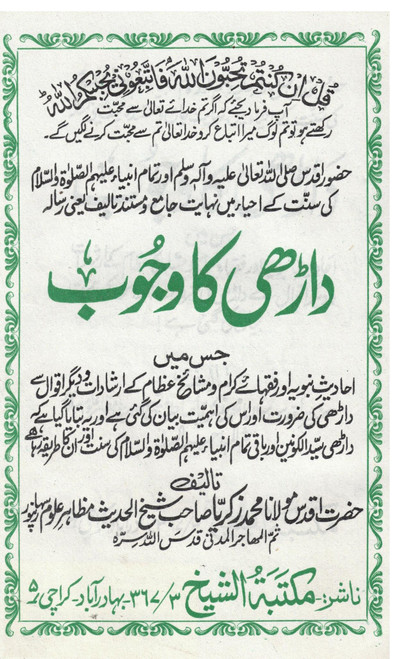 قُل اِن کُنتُم تُحِبُّونَ اللّٰہَ فَاتَّبِعُونِی یُحبِبکُمُ اللّٰہُ
آپ فرما دیجئے کہ اگر تم خدائے تعالیٰ سے محبت
رکھتے ہو تو تم لوگ میرا اتباع کرو خدا تعالیٰ تم سے محبت کرنے لگیں گے۔
حضور اقدس صلی اللہ تعالیٰ علیہ وآلہٖ وسلم اور تمام انبیاء علیہم الصلوٰۃ والسلام
کی سنّت کے احیاء میں نہایت جامع و مستند تالیف یعنی رسالہ
داڑھی کا وجُوب
جس میں
احادیثِ نبویہ اور فقہائے کرام و مشائخِ عظام کے ارشادات و دیگر اقوال سے
داڑھی کی ضرورت اور اس کی اہمیت بیان کی گئی ہے اور یہ بتایا گیا ہے کہ
داڑھی سیّد الکونین اور باقی تمام انبیاء علیہم الصلوٰۃ والسلام کی سنت اور ان کا طریقہ رہا ہے
تالیف
حضرت اقدس مولانا محمد زکریا صاحب شیخ الحدیث مظاہر علوم سہارنپور
ثم المہاجر المدنی قدس اللہ سرہٗ
ناشر:۔ مکتبۃ الشیخ ۳/۳۶۷۔ بہادر آباد۔ کراچی ۵